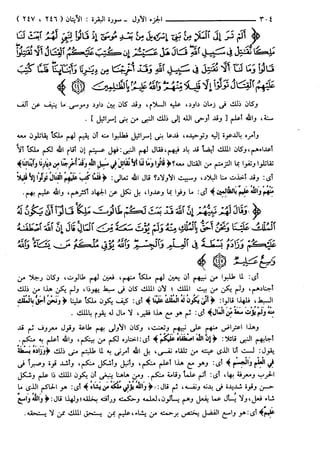 ٣٠٤ ـــــ الجزء الأول ـ سورة البقرة : الآيتان ( ٢٤٦ ، ٢٤٧ )
﴿ أَلَمْ تَرَ إِلَى الْمَلَإِ مِنْ بَنِي إِسْرَائِيلَ مِنْ بَعْدِ مُوسَىٰ إِذْ قَالُوا لِنَبِيٍّ لَهُمُ ابْعَثْ لَنَا
مَلِكًا نُقَاتِلْ فِي سَبِيلِ اللَّهِ قَالَ هَلْ عَسَيْتُمْ إِنْ كُتِبَ عَلَيْكُمُ الْقِتَالُ أَلَّا تُقَاتِلُوا
قَالُوا وَمَا لَنَا أَلَّا نُقَاتِلَ فِي سَبِيلِ اللَّهِ وَقَدْ أُخْرِجْنَا مِنْ دِيَارِنَا وَأَبْنَائِنَا فَلَمَّا كُتِبَ
عَلَيْهِمُ الْقِتَالُ تَوَلَّوْا إِلَّا قَلِيلًا مِنْهُمْ وَاللَّهُ عَلِيمٌ بِالظَّالِمِينَ ﴾
وكان ذلك في زمان داود، عليه السلام، وقد كان بين داود وموسى ما ينيف عن ألف
سنة، والله أعلم [ وقد أوحى الله إلى ذلك النبى من بنى إسرائيل ] .
وأمره بالدعوة إليه وتوحيده، فدعا بنى إسرائيل فطلبوا منه أن يقيم لهم ملكاً يقاتلون معه
أعداءهم، وكان الملك أيضاً قد باد فيهم، فقال لهم النبى: فهل عسيتم إن أقام الله لكم ملكاً ألا
تقاتلوا وتفوا بما التزمتم من القتال معه؟ ﴿ قَالُوا وَمَا لَنَا أَلَّا نُقَاتِلَ فِي سَبِيلِ اللَّهِ وَقَدْ أُخْرِجْنَا مِنْ دِيَارِنَا وَأَبْنَائِنَا ﴾
أى: وقد أخذت منا البلاد، وسبيت الأولاد؟ قال الله تعالى: ﴿ فَلَمَّا كُتِبَ عَلَيْهِمُ الْقِتَالُ تَوَلَّوْا إِلَّا قَلِيلًا
مِنْهُمْ وَاللَّهُ عَلِيمٌ بِالظَّالِمِينَ ﴾ أى: ما وفوا بما وعدوا، بل نكل عن الجهاد أكثرهم، والله عليم بهم.
﴿ وَقَالَ لَهُمْ نَبِيُّهُمْ إِنَّ اللَّهَ قَدْ بَعَثَ لَكُمْ طَالُوتَ مَلِكًا قَالُوا أَنَّىٰ يَكُونُ لَهُ
الْمُلْكُ عَلَيْنَا وَنَحْنُ أَحَقُّ بِالْمُلْكِ مِنْهُ وَلَمْ يُؤْتَ سَعَةً مِنَ الْمَالِ قَالَ إِنَّ اللَّهَ اصْطَفَاهُ
عَلَيْكُمْ وَزَادَهُ بَسْطَةً فِي الْعِلْمِ وَالْجِسْمِ وَاللَّهُ يُؤْتِي مُلْكَهُ مَنْ يَشَاءُ وَاللَّهُ
وَاسِعٌ عَلِيمٌ ﴾
أى: لما طلبوا من نبيهم أن يعين لهم ملكاً منهم، فعين لهم طالوت، وكان رجلا من
أجنادهم، ولم يكن من بيت الملك ؛ لأن الملك كان فى سبط يهوذا، ولم يكن هذا من ذلك
السبط، فلهذا قالوا: ﴿ أَنَّىٰ يَكُونُ لَهُ الْمُلْكُ عَلَيْنَا ﴾ أى: كيف يكون ملكاً علينا ﴿ وَنَحْنُ أَحَقُّ بِالْمُلْكِ
مِنْهُ وَلَمْ يُؤْتَ سَعَةً مِنَ الْمَالِ ﴾ أى: ثم هو مع هذا فقير، لا مال له يقوم بالملك .
وهذا اعتراض منهم على نبيهم وتعنت، وكان الأولى بهم طاعة وقول معروف ثم قد
أجابهم النبى قائلا: ﴿ إِنَّ اللَّهَ اصْطَفَاهُ عَلَيْكُمْ ﴾ أى:اختاره لكم من بينكم، والله أعلم به منكم.
يقول: لست أنا الذى عينته من تلقاء نفسى، بل الله أمرنى به لما طلبتم منى ذلك ﴿ وَزَادَهُ بَسْطَةً
فِي الْعِلْمِ وَالْجِسْمِ ﴾ أى: وهو مع هذا أعلم منكم، وأنبل وأشكل منكم، وأشد قوة وصبراً فى
الحرب ومعرفة بها، أى: أتم علماً وقامة منكم. ومن هاهنا ينبغى أن يكون الملك ذا علم وشكل
حسن وقوة شديدة فى بدنه ونفسه، ثم قال: ﴿ وَاللَّهُ يُؤْتِي مُلْكَهُ مَنْ يَشَاءُ ﴾ أى: هو الحاكم الذى ما
شاء فعل، ولا يُسأل عما يفعل وهم يسألون،لعلمه وحكمته ورأفته بخلقه؛ ولهذا قال: ﴿ وَاللَّهُ وَاسِعٌ
عَلِيمٌ ﴾ أى: هو واسع الفضل يختص برحمته من يشاء، عليم بمن يستحق الملك ممن لا يستحقه.